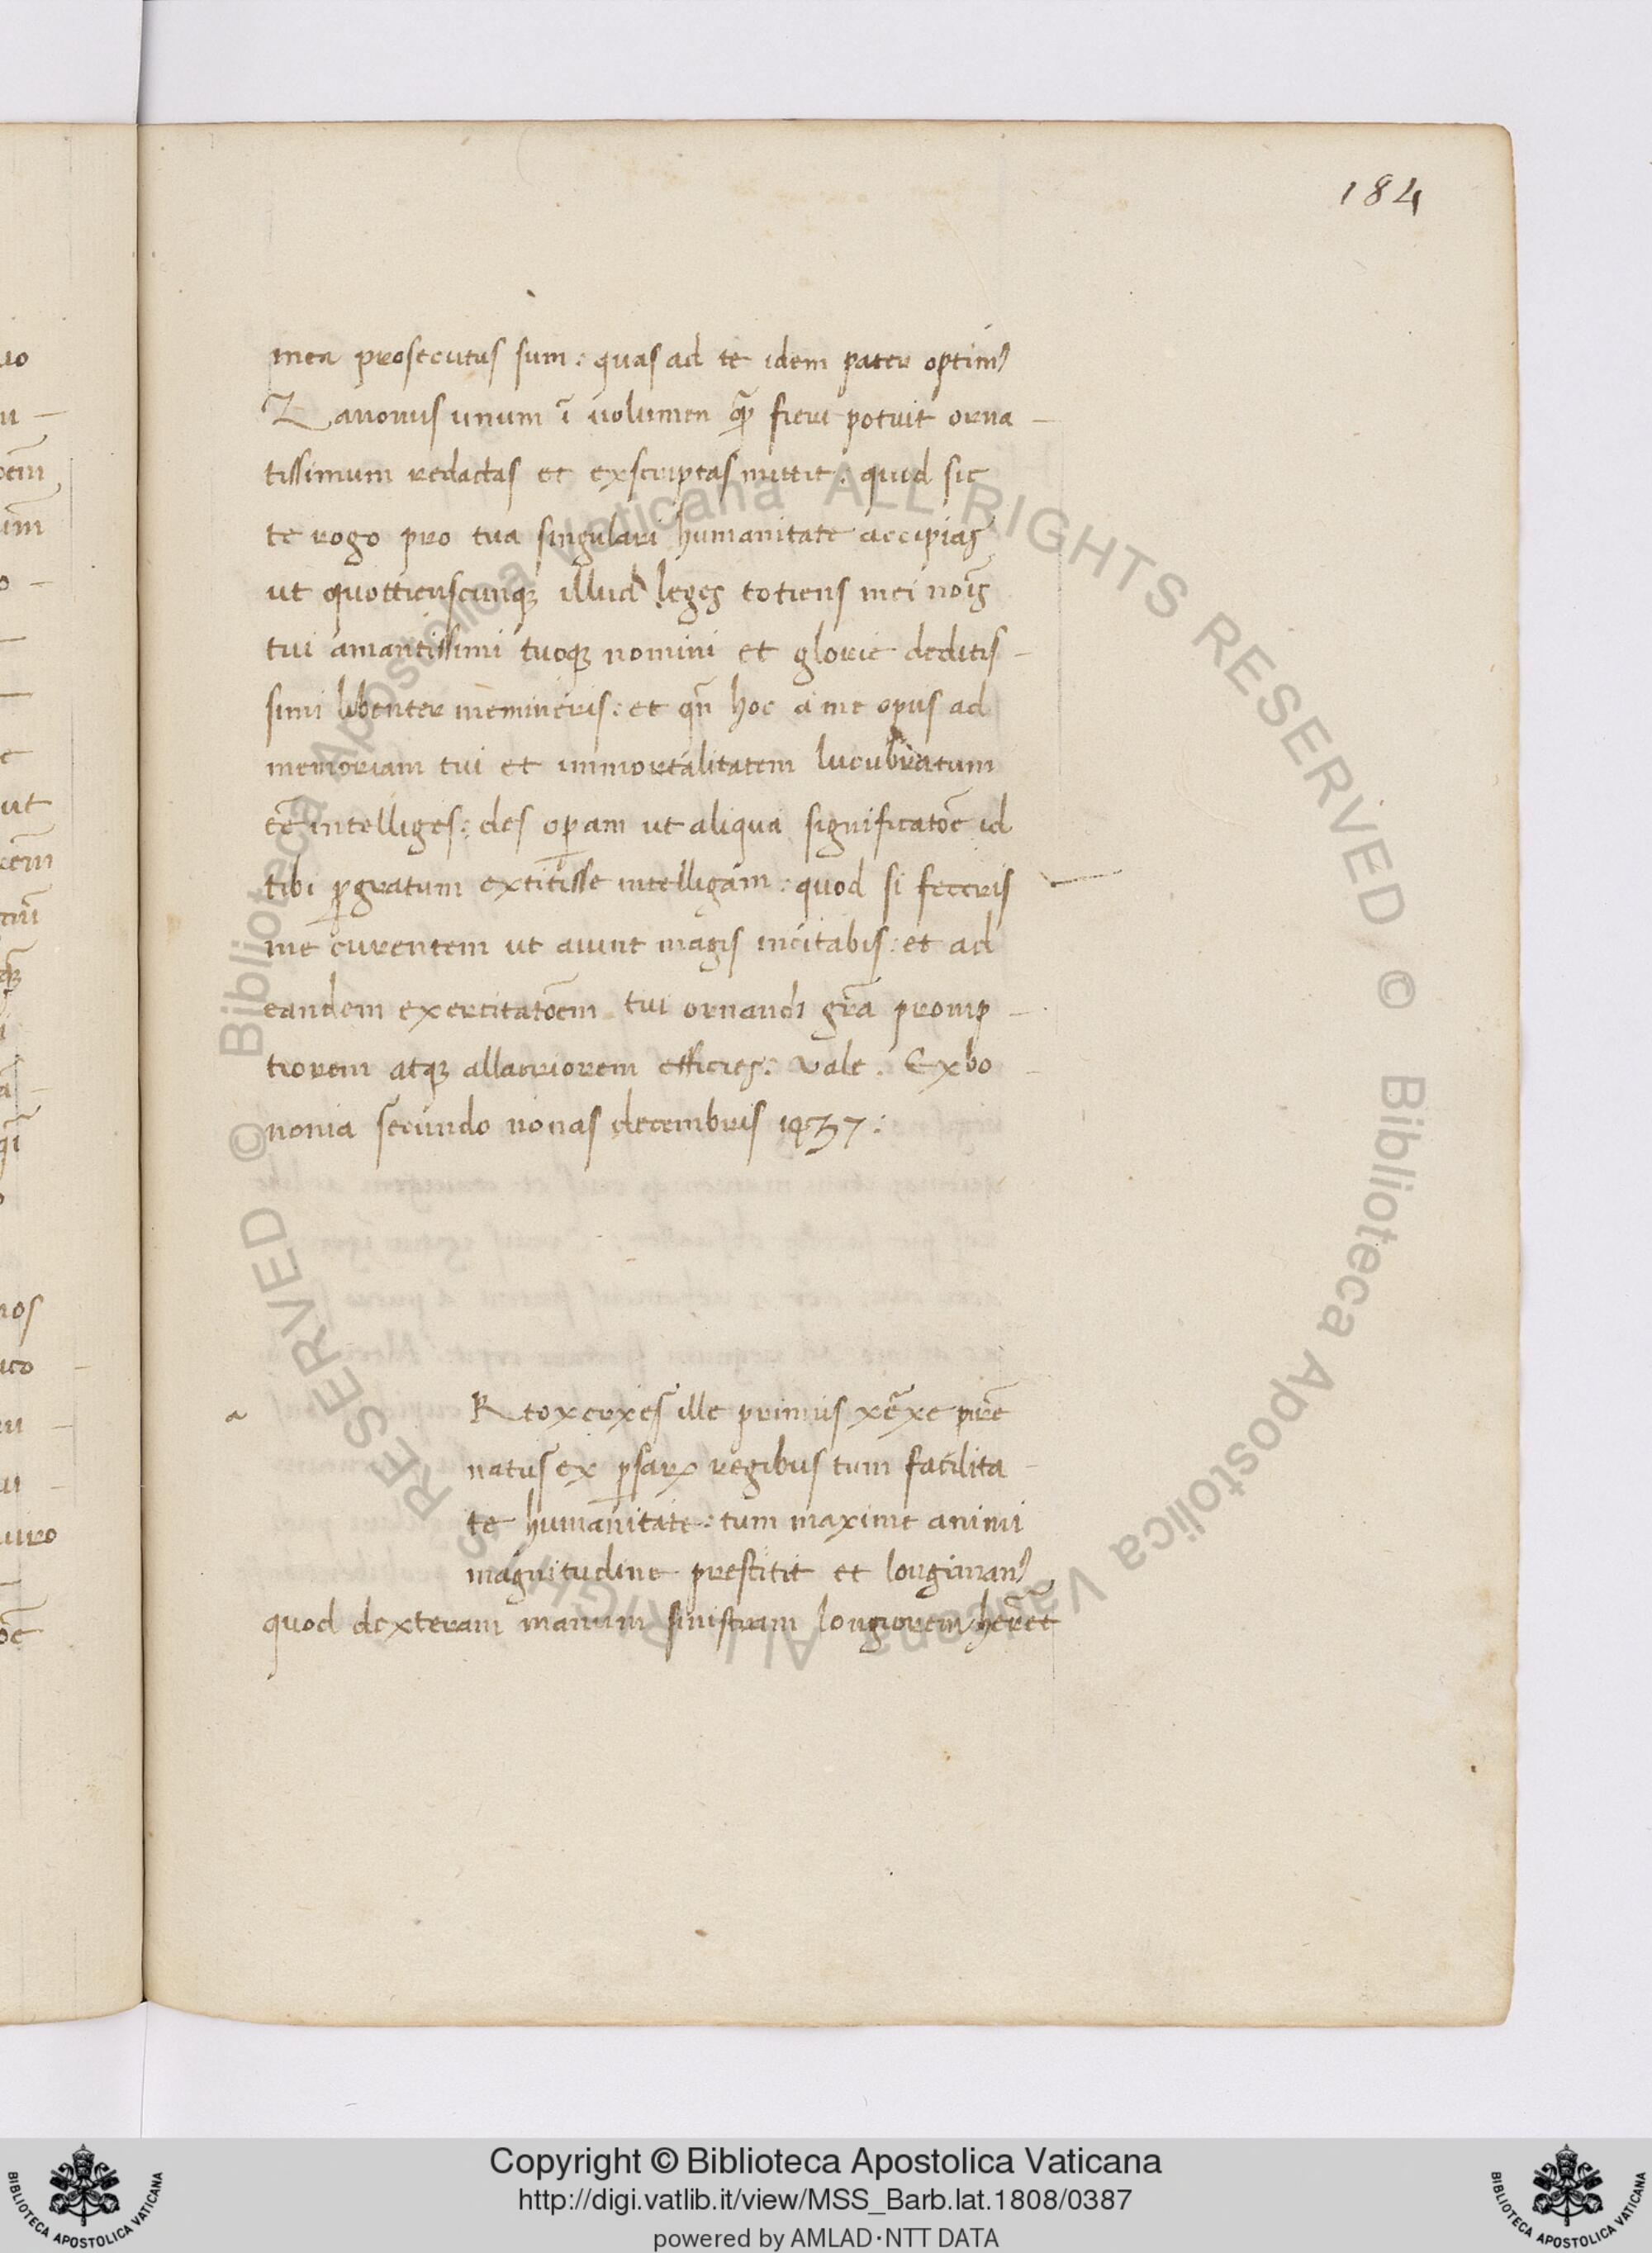 184
mea prosecutus sum: quas ad te idem pater optim9
Zanonus unum ī uolumen qȝ fieri potuit orna
tissimum redactas et exscriptas mittit: quid sic
te rogo pro tua singulari humanitate accipias
ut quottienscunqȝ illud leges totiens mei noīs
tui amantissimi tuoqȝ nomini et glorie deditis
simi libenter memineris: et qn̄ hoc a me opus ad
memoriam tui et immortalitatem lucubratum
eē intelliges: des opam ut aliqua significatōe id
tibi pgratum extitisse intelligam: quod si feceris
me curentem ut aiunt magis incitabis: et ad
eandem exercitatōem tui ornandi grā promp
tiorem atqȝ allacriorem efficies: vale. Ex bo
nonia secundo nonas decembris 1437:
a Rtoxerxes ille primus xēxe pre
natus ex psaꝝ regibus tum facilita
te humanitate: tum maxime animi
magnitudine prestitit et longiman9
quod dexteram manum sinistram longiorem her̄et
Copyright © Biblioteca Apostolica Vaticana
http://digi.vatlib.it/view/MSS_Barb.lat.1808/0387
powered by AMLAD·NTT DATA
BIBLIOTECA APOSTOLICA VATICANA
BIBLIOTECA APOSTOLICA VATICANA
© Biblioteca Apostolica Vaticana ALL RIGHTS RESERVED
© Biblioteca Apostolica Vaticana ALL RIGHTS RESERVED